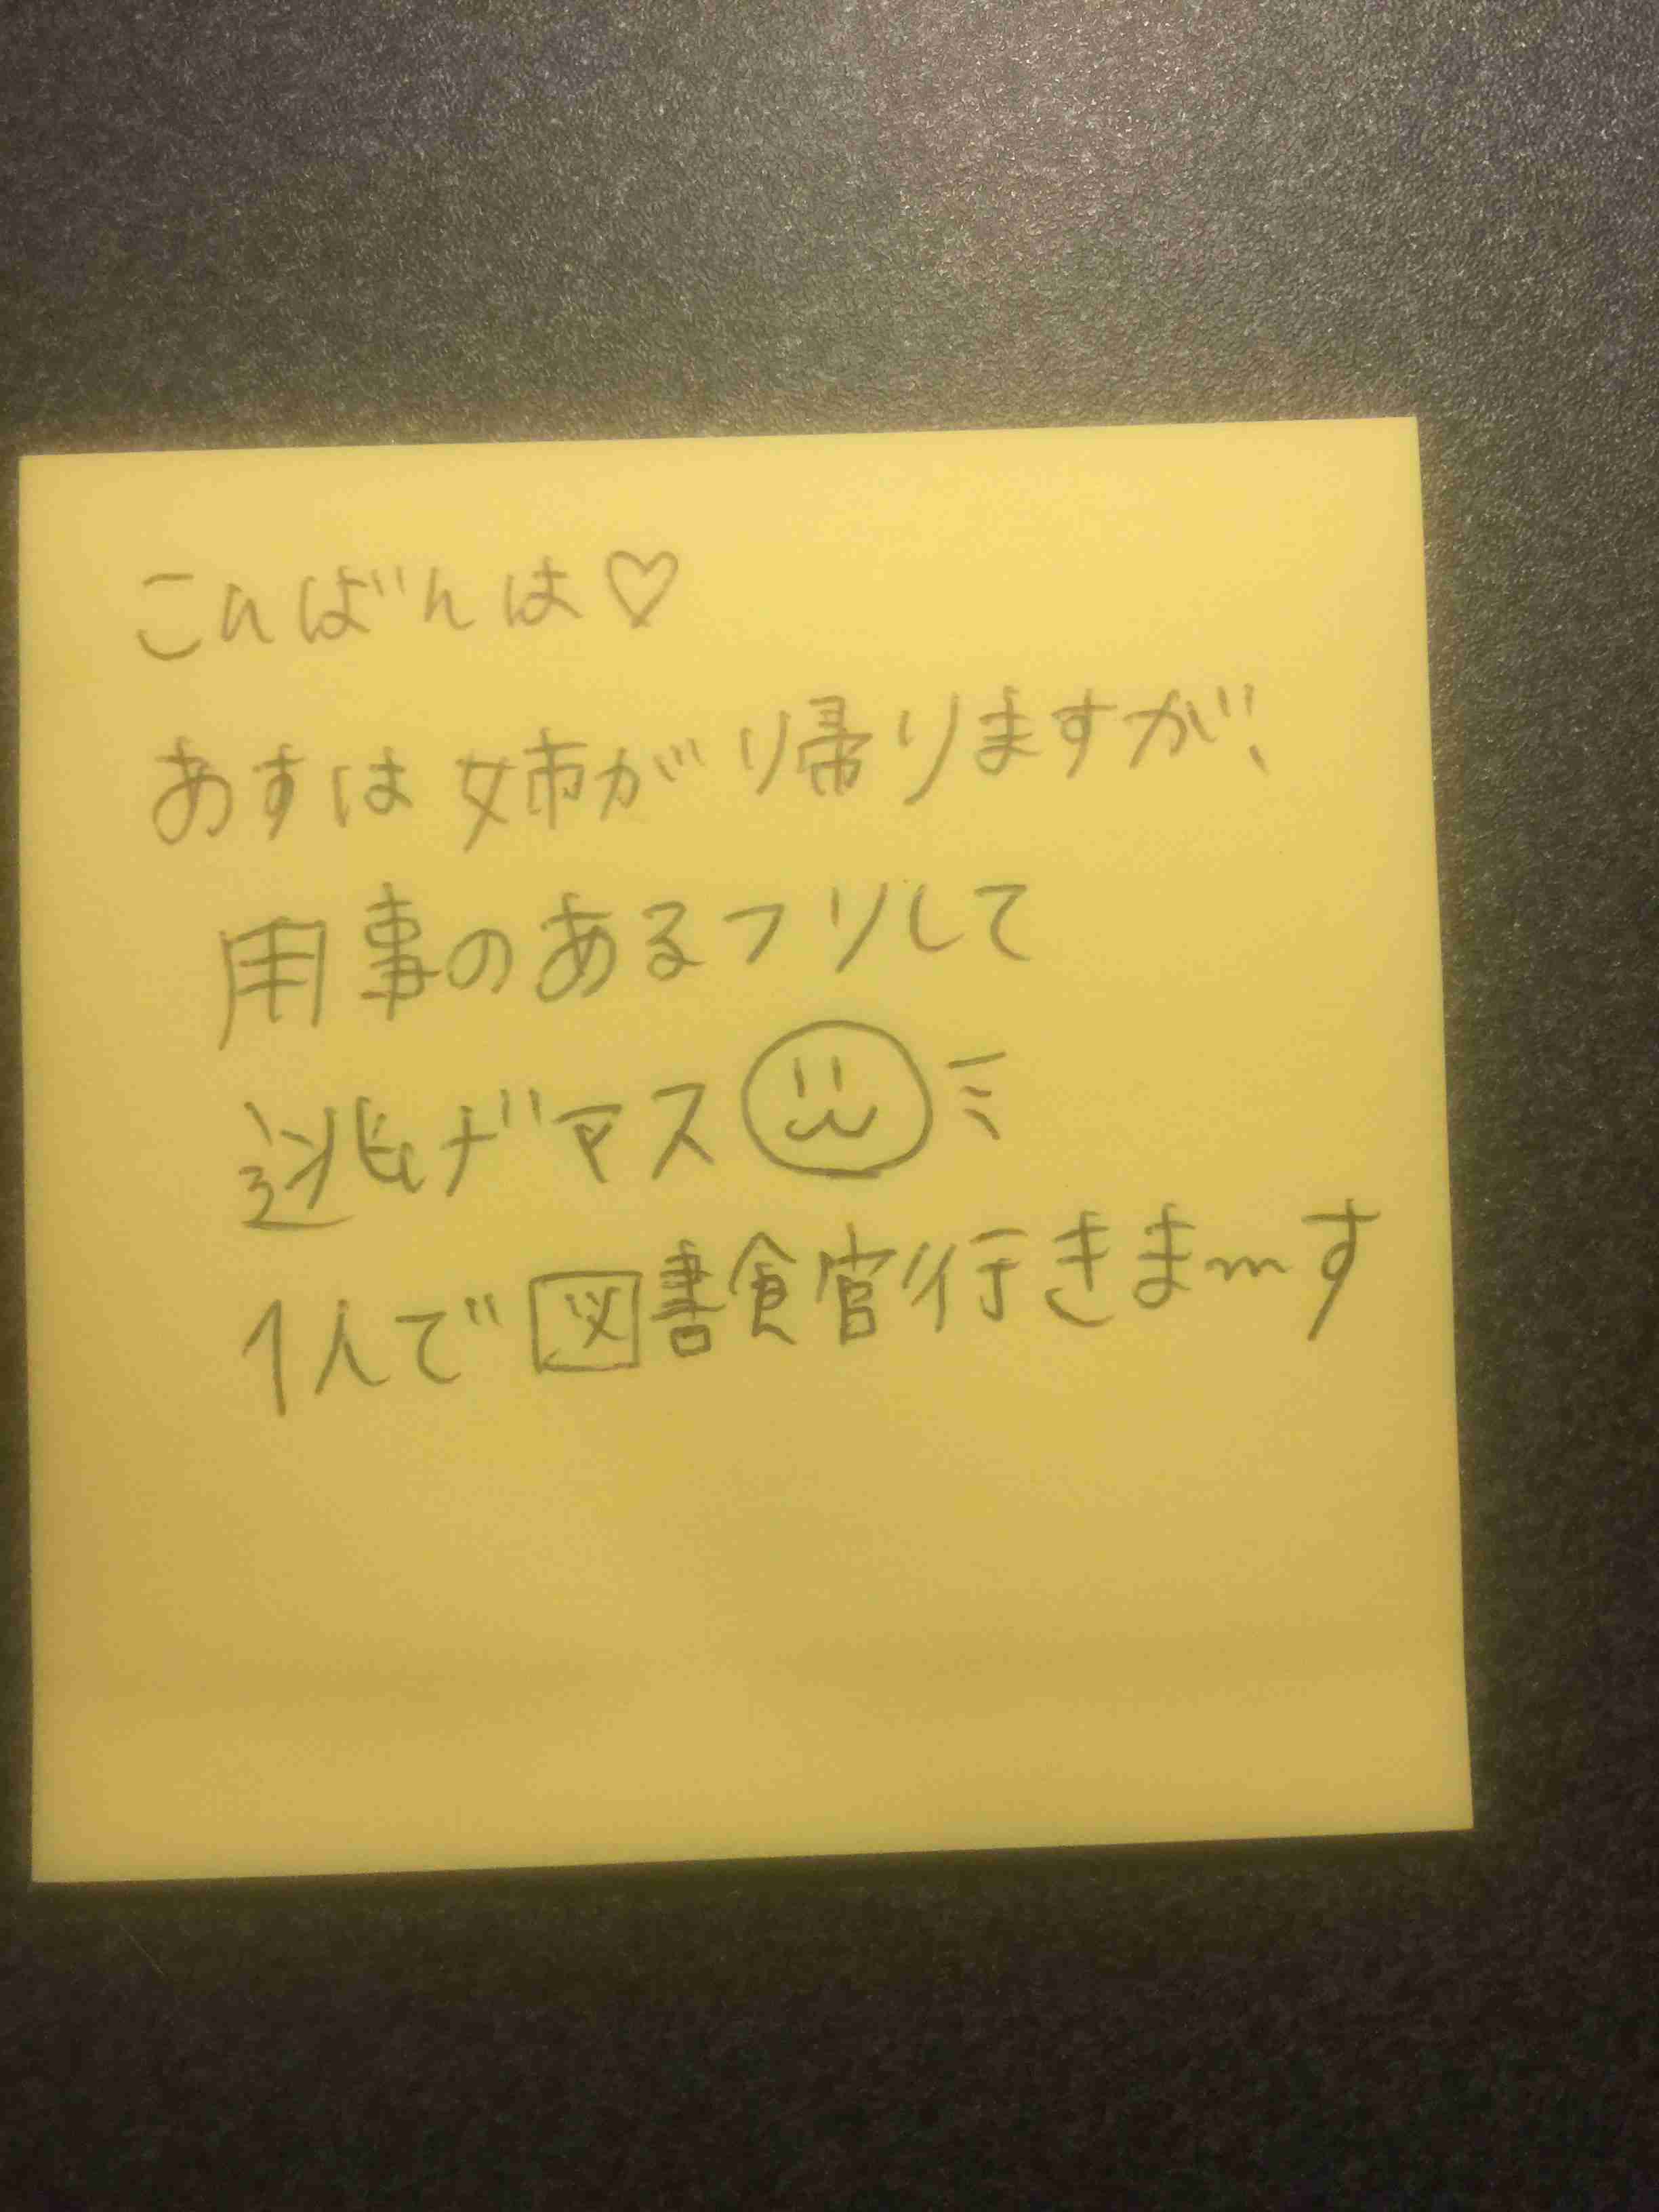 こんばんは♡
あすは姉が帰りますが、
用事のあるフリして
逃げマス
1人で図書館行きま〜す